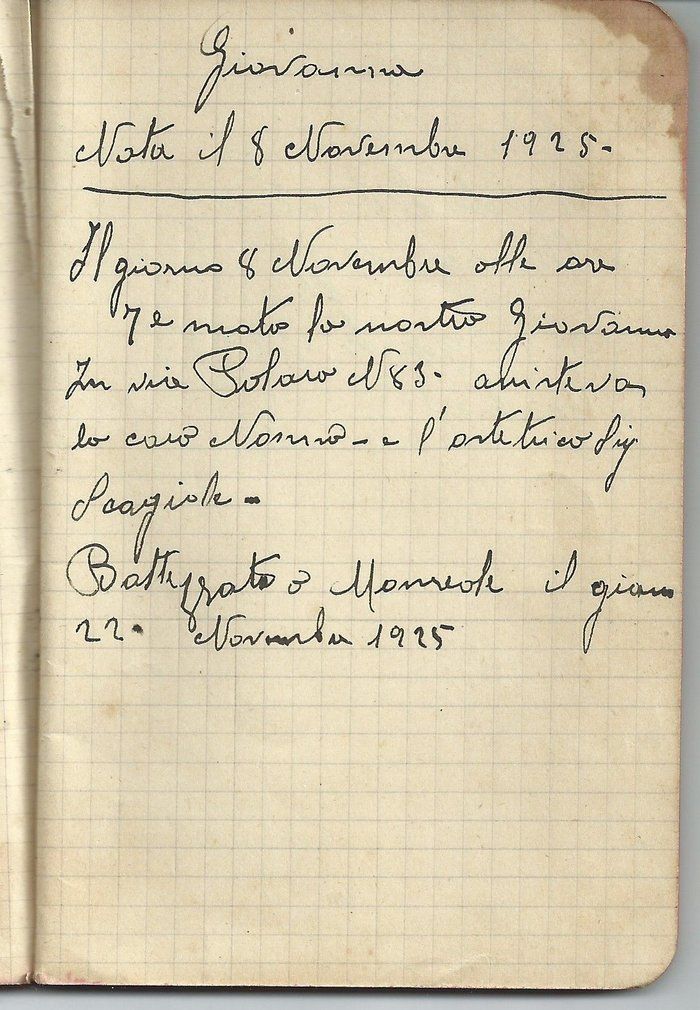 Giovanna
Nata il 8 Novembre 1925-
Il giorno 8 Novembre alle ore
7 e nata la nostra Giovanna
In via Polara N83- assisteva
la cara Nonna - e l'ostetrica Sig
Scagiole -
Battezzata a Monreale il giorno
22- Novembre 1925